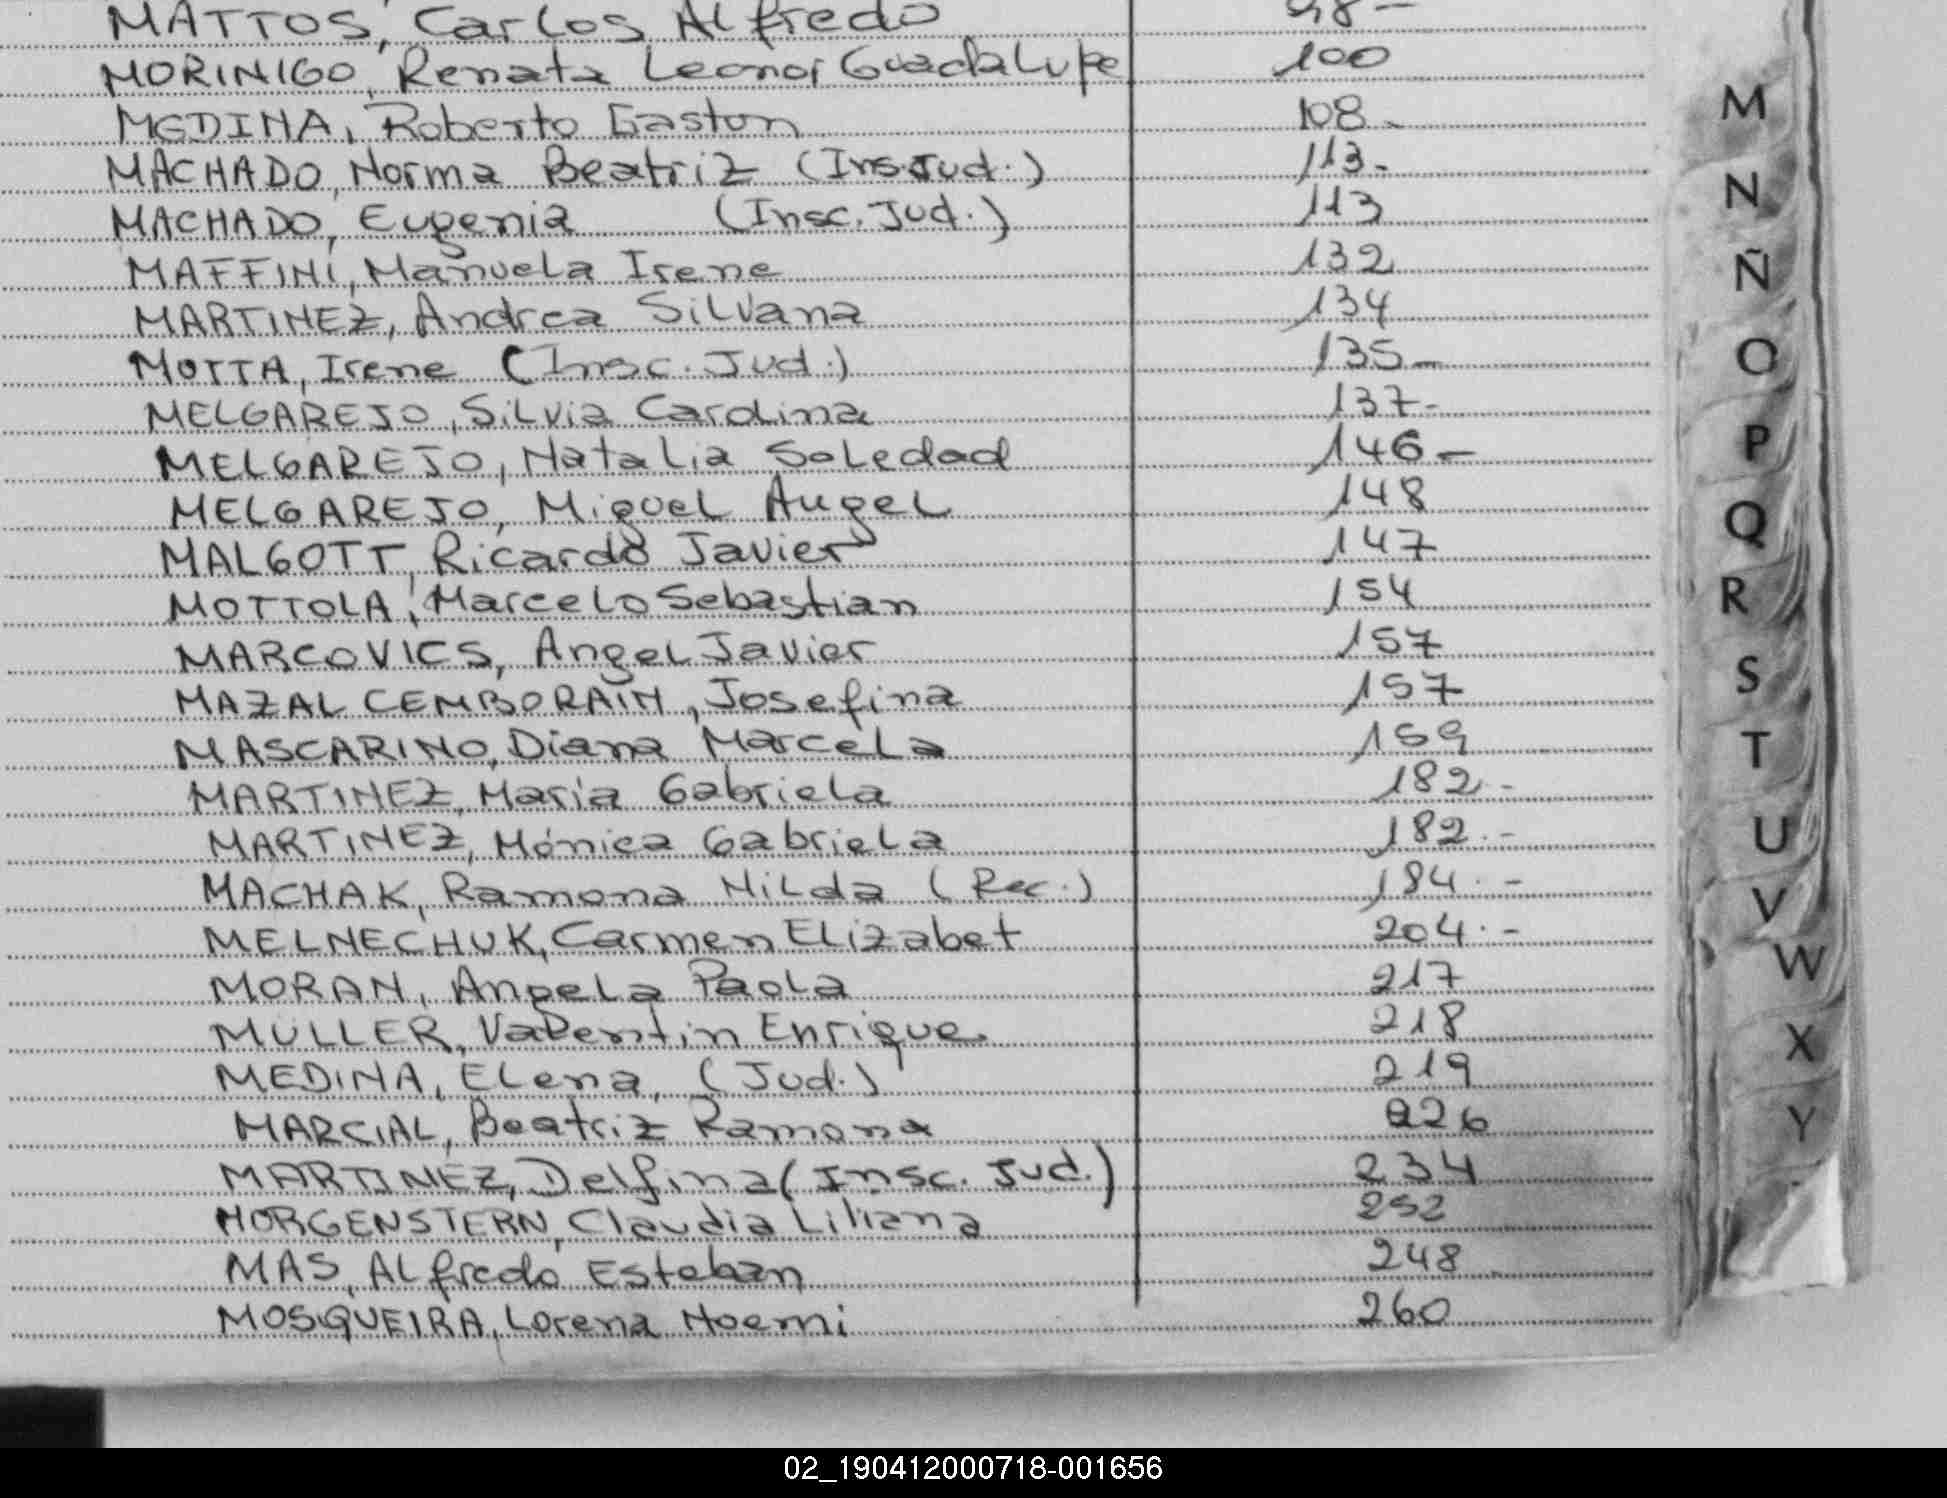 MATTOS, Carlos Alfredo 98-
MORINIGO, Renata Leonor Guadalupe 100
MEDINA, Roberto Gaston 108-
MACHADO, Norma Beatriz (Ins.Jud.) 113-
MACHADO, Eugenia (Insc. Jud.) 113
MAFFINI, Manuela Irene 132
MARTINEZ, Andrea Silvana 134
MOTTA, Irene (Insc. Jud.) 135-
MELGAREJO, Silvia Carolina 137-
MELGAREJO, Natalia Soledad 146-
MELGAREJO, Miguel Angel 148
MALGOTT, Ricardo Javier 147
MOTTOLA, Marcelo Sebastian 154
MARCOVICS, Angel Javier 157
MAZAL CEMBORAIN, Josefina 157
MASCARINO, Diana Marcela 159
MARTINEZ, María Gabriela 182.-
MARTINEZ, Mónica Gabriela 182.-
MACHAK, Ramona Nilda (Rec.) 184.-
MELNECHUK, Carmen Elizabet 204.-
MORAN, Angela Paola 217
MULLER, Valentin Enrique 218
MEDINA, Elena, (Jud.) 219
MARCIAL, Beatriz Ramona 226
MARTINEZ, Delfina (Insc. Jud.) 234
MORGENSTERN, Claudia Liliana 252
MAS, Alfredo Esteban 248
MOSQUEIRA, Lorena Noemi 260
M
N
Ñ
O
P
Q
R
S
T
U
V
W
X
Y
02_190412000718-001656